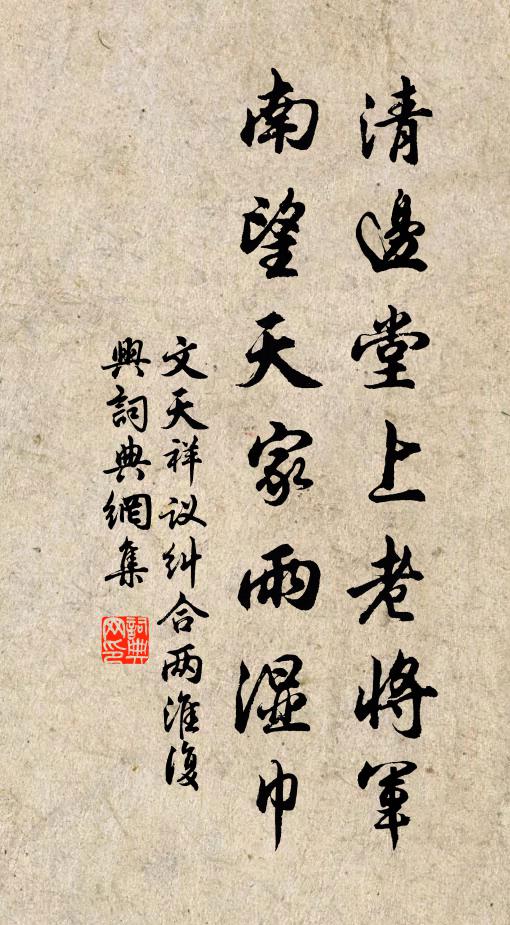 清邊堂上老將軍
南望天家雨湿巾
文天祥议纠合两淮復
興詞典網集
詞典網印